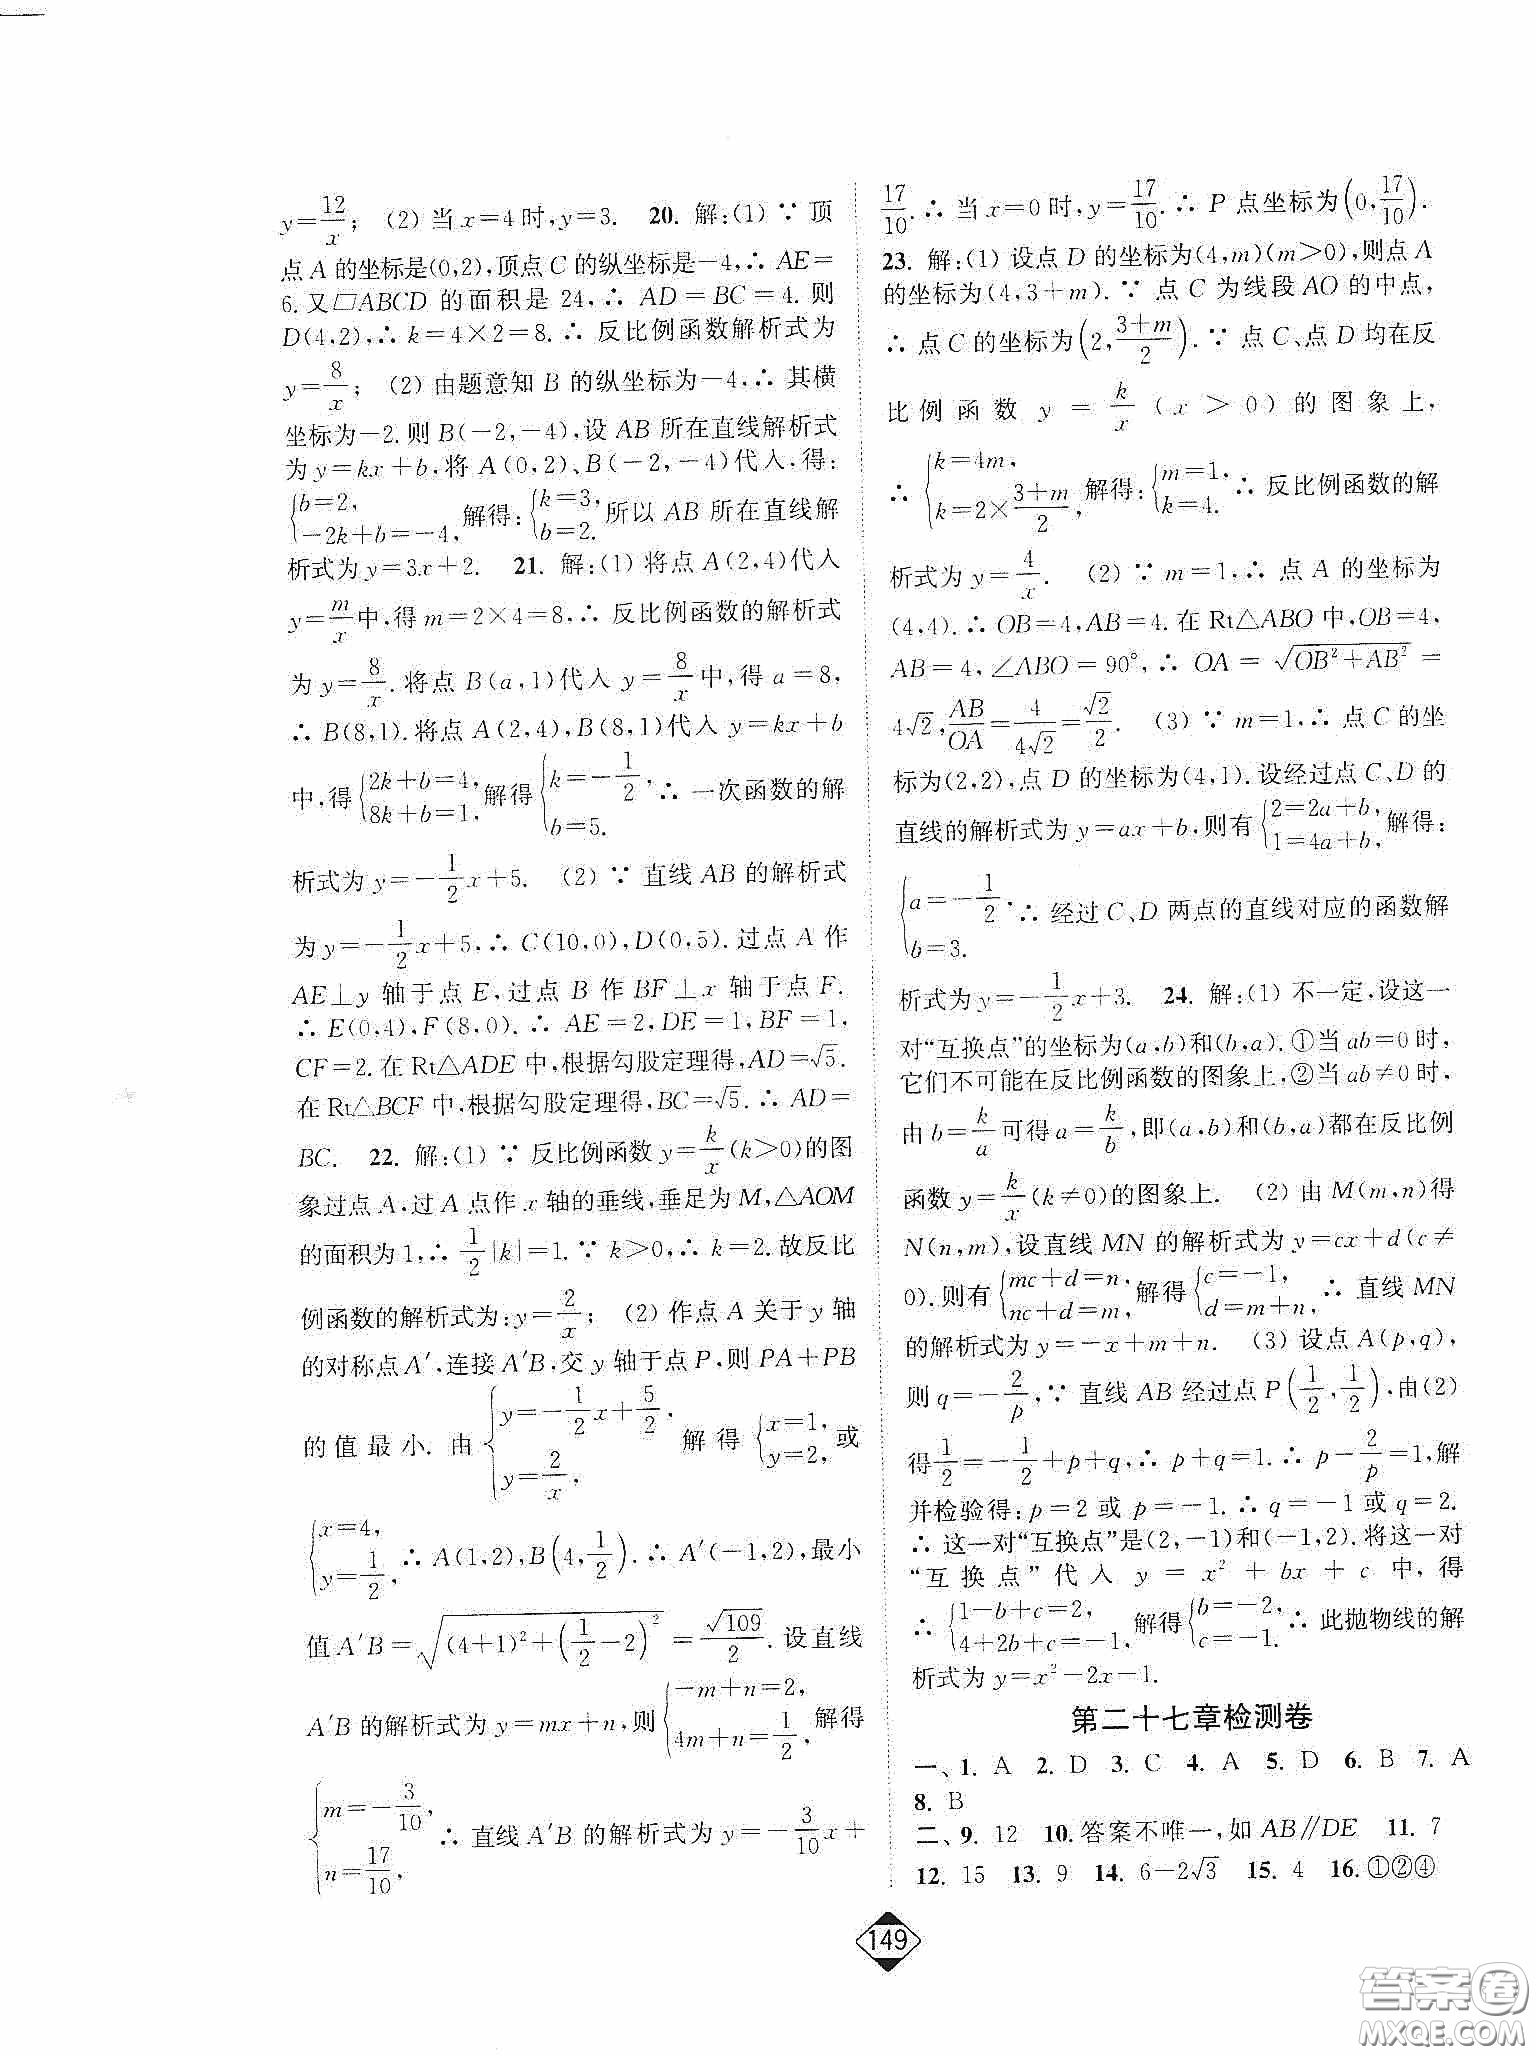 y=12/x; (2) 当 x=4 时,y=3. 20. 解:(1) ∵ 顶
点 A 的坐标是(0,2),顶点 C 的纵坐标是-4,∴ AE=
6. 又▱ABCD 的面积是 24,∴ AD=BC=4. 则
D(4,2),∴ k=4×2=8. ∴ 反比例函数解析式为
y=8/x; (2) 由题意知 B 的纵坐标为-4,∴ 其横
坐标为-2. 则 B(-2,-4),设 AB 所在直线解析式
为 y=kx+b,将 A(0,2)、B(-2,-4)代入,得:
{b=2, -2k+b=-4, 解得:{k=3, b=2. 所以 AB 所在直线解
析式为 y=3x+2. 21. 解:(1) 将点 A(2,4)代入
y=m/x中,得 m=2×4=8,∴ 反比例函数的解析式
为 y=8/x. 将点 B(a,1)代入 y=8/x中,得 a=8,
∴ B(8,1). 将点 A(2,4),B(8,1)代入 y=kx+b
中,得{2k+b=4, 8k+b=1, 解得{k=-1/2, b=5. ∴ 一次函数的解
析式为 y=-1/2x+5. (2) ∵ 直线 AB 的解析式
为 y=-1/2x+5,∴ C(10,0),D(0,5). 过点 A 作
AE⊥y 轴于点 E,过点 B 作 BF⊥x 轴于点 F.
∴ E(0,4),F(8,0). ∴ AE=2,DE=1,BF=1,
CF=2. 在 Rt△ADE 中,根据勾股定理得,AD=√5.
在 Rt△BCF 中,根据勾股定理得,BC=√5. ∴ AD=
BC. 22. 解:(1) ∵ 反比例函数 y=k/x(k>0)的图
象过点 A,过 A 点作 x 轴的垂线,垂足为 M,△AOM
的面积为 1,∴ 1/2|k|=1. ∵ k>0,∴ k=2. 故反比
例函数的解析式为:y=2/x; (2) 作点 A 关于 y 轴
的对称点 A′,连接 A′B,交 y 轴于点 P,则 PA+PB
的值最小. 由{y=-1/2x+5/2, y=2/x, 解得{x=1, y=2, 或
{x=4, y=1/2, ∴ A(1,2),B(4,1/2). ∴ A′(-1,2),最小
值 A′B=√((4+1)²+(1/2-2)²)=√109/2. 设直线
A′B 的解析式为 y=mx+n,则{-m+n=2, 4m+n=1/2, 解得
{m=-3/10, n=17/10, ∴ 直线 A′B 的解析式为 y=-3/10x+
17/10. ∴ 当 x=0 时,y=17/10. ∴ P 点坐标为(0,17/10).
23. 解:(1) 设点 D 的坐标为(4,m)(m>0),则点 A
的坐标为(4,3+m). ∵ 点 C 为线段 AO 的中点,
∴ 点 C 的坐标为(2,(3+m)/2). ∵ 点 C、点 D 均在反
比例函数 y=k/x(x>0)的图象上,
∴ {k=4m, k=2×(3+m)/2, 解得:{m=1, k=4. ∴ 反比例函数的解
析式为 y=4/x. (2) ∵ m=1,∴ 点 A 的坐标为
(4,4). ∴ OB=4,AB=4. 在 Rt△ABO 中,OB=4,
AB=4,∠ABO=90°,∴ OA=√(OB²+AB²)=
4√2,AB/OA=4/(4√2)=√2/2. (3) ∵ m=1,∴ 点 C 的坐
标为(2,2),点 D 的坐标为(4,1). 设经过点 C、D 的
直线的解析式为 y=ax+b,则有{2=2a+b, 1=4a+b, 解得:
{a=-1/2, b=3. ∴ 经过 C、D 两点的直线对应的函数解
析式为 y=-1/2x+3. 24. 解:(1) 不一定,设这一
对“互换点”的坐标为(a,b)和(b,a). ①当 ab=0 时,
它们不可能在反比例函数的图象上,②当 ab≠0 时,
由 b=k/a可得 a=k/b,即(a,b)和(b,a)都在反比例
函数 y=k/x(k≠0)的图象上. (2) 由 M(m,n)得
N(n,m),设直线 MN 的解析式为 y=cx+d(c≠
0). 则有{mc+d=n, nc+d=m, 解得{c=-1, d=m+n, ∴ 直线 MN
的解析式为 y=-x+m+n. (3) 设点 A(p,q),
则 q=-2/p,∵ 直线 AB 经过点 P(1/2,1/2),由(2)
得1/2=-1/2+p+q,∴ p+q=1. ∴ p-2/p=1,解
并检验得:p=2 或 p=-1. ∴ q=-1 或 q=2.
∴ 这一对“互换点”是(2,-1)和(-1,2). 将这一对
“互换点”代入 y=x²+bx+c 中,得
∴ {1-b+c=2, 4+2b+c=-1, 解得{b=-2, c=-1. ∴ 此抛物线的解
析式为 y=x²-2x-1.
第二十七章检测卷
一、1. A 2. D 3. C 4. A 5. D 6. B 7. A
8. B
二、9. 12 10. 答案不唯一,如 AB∥DE 11. 7
12. 15 13. 9 14. 6-2√3 15. 4 16. ①②④
149
答案圈
MXQE.COM